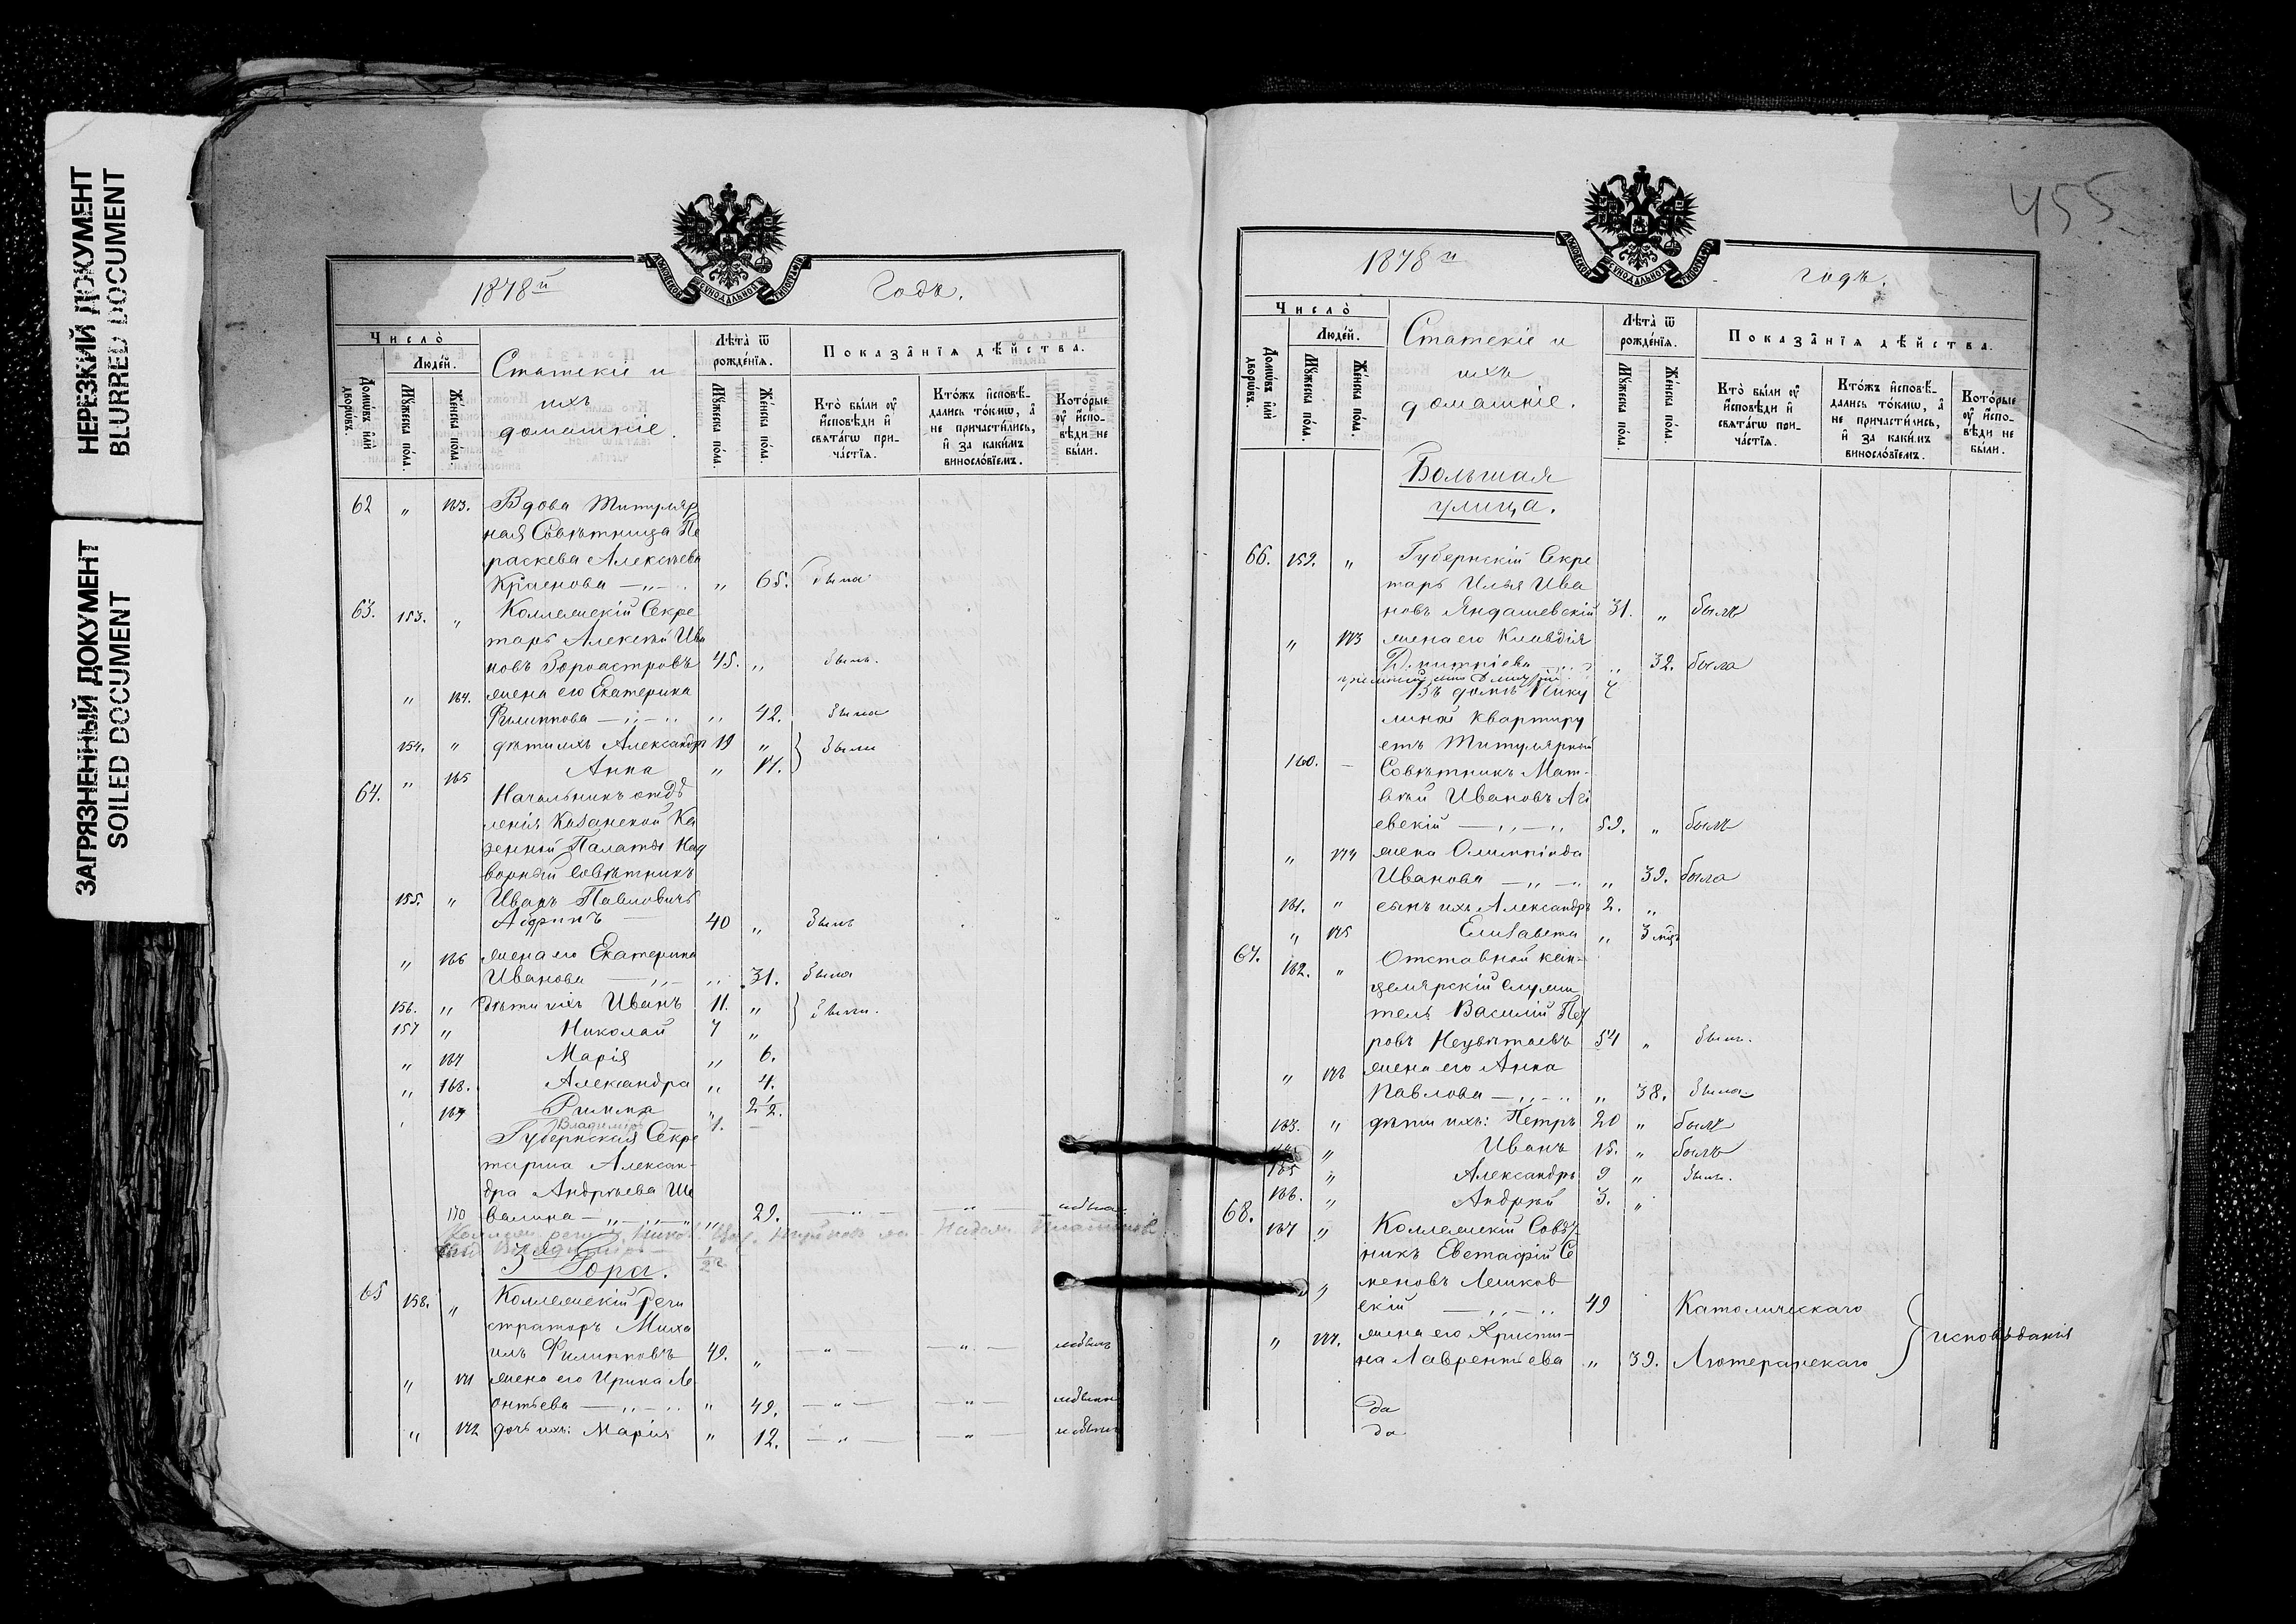 НЕРЕЗКИЙ ДОКУМЕНТ
BLURRED DOCUMENT
ЗАГРЯЗНЕННЫЙ ДОКУМЕНТ
SOILED DOCUMENT
МОСКОВСКОЙ СѴНОДАЛЬНОЙ ТИПОГРАФІИ
1878й Годъ.
Число̀
Людей.
Домѡвъ и҆лѝ дворѡ́въ.
Мꙋ́жеска по́ла.
Же́нска по́ла.
Статскіе и
ихъ
домашніе.
Лѣта̀ ѿ рожде́нїѧ.
Мꙋ́жеска по́ла.
Же́нска по́ла.
Показа̂нїѧ дѣ́йства.
Кто̀ бы́ли ᲂу҆ и҆сповѣ́ди и҆ свѧта́гѡ прича́стїѧ.
Кто́жъ и҆сповѣ́дались то́кмѡ, а҆ не причасти́лись, и҆ за каки́мъ винослові́емъ.
Кото́рые ᲂу҆ и҆сповѣ́ди не бы́ли.
62 „ 163. Вдова Титуляр
ная Совѣтница Па
раскева Алексѣева
Краснова „ 65. была
63. 153. „ Коллежскій Секре
тарь Алексѣй Ива
новъ Зороастровъ 45. „ былъ.
„ 164. жена его Екатерина
Филиппова „ 42. была
154. „ дѣти ихъ Александръ 19 „ были
„ 165 Анна „ 17.
64. Начальникъ отдѣ
ленія Казанской Ка
зенной Палаты Над
ворный Совѣтникъ
155. „ Иванъ Павловичъ
40 „ былъ
„ 166 жена его Екатерина
Иванова „ 31. была
156. „ Дѣти ихъ Иванъ 11. „ были.
157 „ Николай 7 „
„ 167 Марія „ 6.
„ 168. Александра „ 4.
169 Римма „ 2 1/2.
Владиміръ 1.
Губернская Секре
тарша Алексан-
дра Андреева Ше
170 валина „ 29. небыла
Гора.
65 158. „ Коллежскій Реги
страторъ Миха
илъ Филипповъ 49. „ небылъ
„ 171 жена его Ирина Ле
онтьева „ 49. небыла
„ 172 дочь ихъ: Марія „ 12. небыла
455
МОСКОВСКОЙ СѴНОДАЛЬНОЙ ТИПОГРАФІИ
1878й годъ.
Число̀
Людей.
Домѡвъ и҆лѝ дворѡ́въ.
Мꙋ́жеска по́ла.
Же́нска по́ла.
Статскіе и
ихъ
домашніе.
Лѣта̀ ѿ рожде́нїѧ.
Мꙋ́жеска по́ла.
Же́нска по́ла.
Показа̂нїѧ дѣ́йства.
Кто̀ бы́ли ᲂу҆ и҆сповѣ́ди и҆ свѧта́гѡ прича́стїѧ.
Кто́жъ и҆сповѣ́дались то́кмѡ, а҆ не причасти́лись, и҆ за каки́мъ винослові́емъ.
Кото́рые ᲂу҆ и҆сповѣ́ди не бы́ли.
Большая
улица.
66. 159. „ Губернскій Секре
тарь Илья Ива
новъ Яндашевскій 31. „ былъ
„ 173 жена его Клавдія
Дмитріева „ 32. была
Въ домѣ Пику
линой квартиру
етъ Титулярный
160. – Совѣтникъ Мат-
вѣй Ивановъ Агі
евскій 59. „ былъ
„ 174 жена Олимпіада
Иванова „ 39. была
161. „ сынъ ихъ Александръ 2. „
„ 175 Елизавета „ 3 мѣс
67. 162. „ Отставной кан-
целярскій служи
тель Василій Пет
ровъ Нецвѣтаевъ 54 „ былъ.
„ 176 жена его Анна
Павлова „ 38. была
163. „ дѣти ихъ: Петръ 20 „ былъ
„ Иванъ 15. „ былъ
165 „ Александръ 9 „ былъ.
166. „ Андрей 3. „
68. 167 „ Коллежскій Совѣт
никъ Евстафій Се
меновъ Лешков
скій 49 Католическаго
„ 177. жена его Христи-
на Лаврентьева „ 39. Лютеранскаго } исповѣданія
да
да